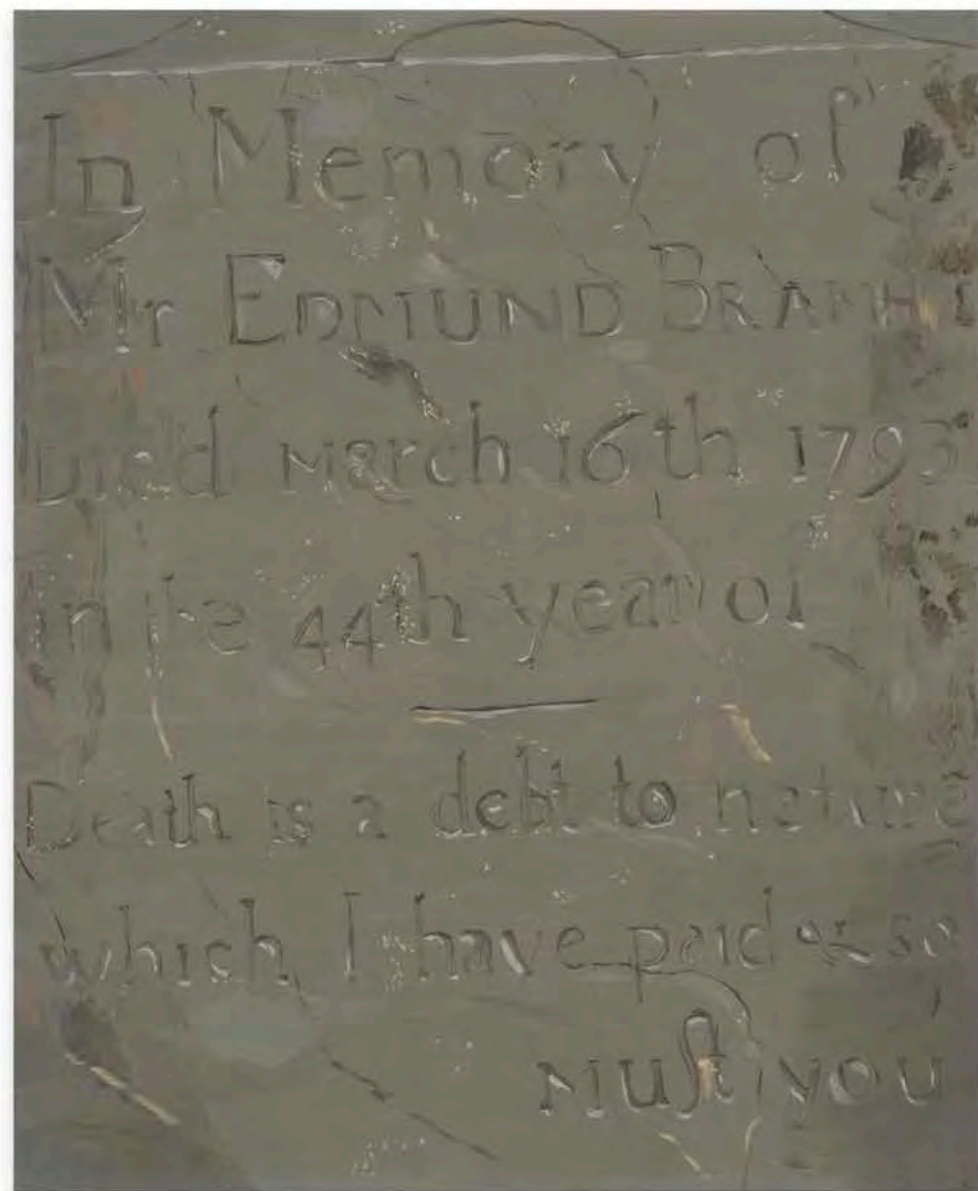 In Memory of
Mr EDMUND
Died March 16th 1793
In ye 44th year of
Death is a debt to nature
which I have paid & so
Muſt you